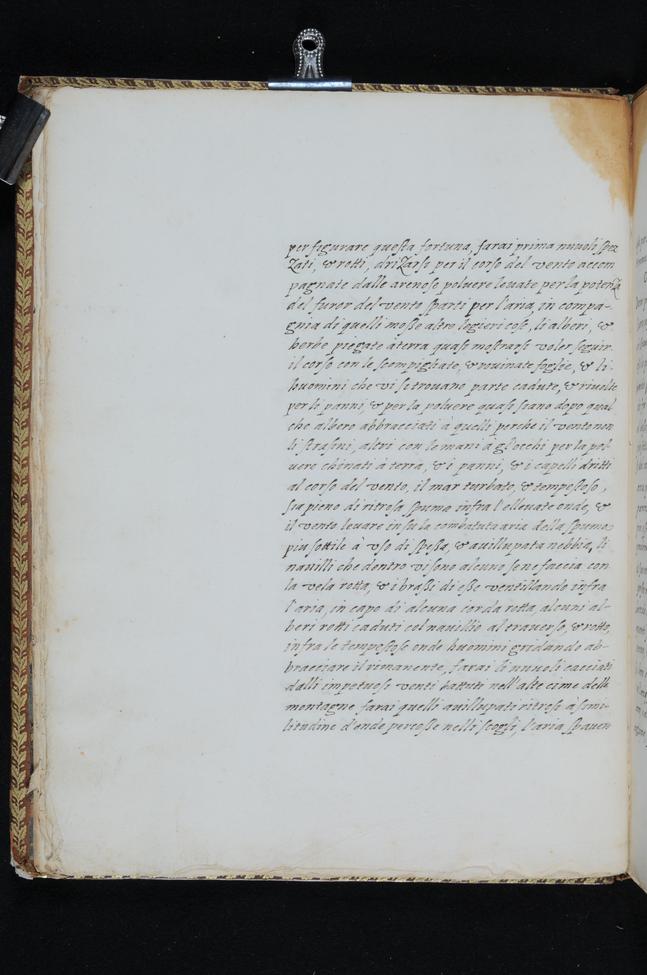 per figurare questa fortuna, farai prima nuuoli spez
Zati, & rotti, driZarse per il corso del vento accom
pagnate dalle arenose poluere leuate per la potenZa
del furor del vento sparti per l'aria, in compa-
gnia di quelli mosse altre legieri cose, li alberi, &
herbe piegate à terra quasi mostrarse voler seguir
il corso con le scompigliate, & rouinate foglie, & li
huomini che vi se trouano parte cadute, & riuolte
per li panni, & per la poluere quasi siano dopo qual
che albero abbracciati à quelli perche il vento non
li strasini, altri con le mani à gl'occhi per la pol
uere chinati à terra, & i panni, & i capelli dritti
al corso del vento, il mar turbato, & tempestoso,
sia pieno di ritrosa spuma infra l'elleuate onde, &
il vento leuare in su la combatuta aria della spuma
piu sottile à vso di spessa, & auillupata nebbia, li
nauilli che dentro vi sono alcuno se ne faccia con
la vela rotta, & i brassi di esse ventillando infra
l'aria, in capo di alcuna corda rotta, alcuni al-
beri rotti caduti col nauillio al trauerso, & rotto,
infra le tempestose onde huomini gridando ab-
bracciare il rimanente, farai li nuuoli cacciati
dalli impetuosi venti battuti nell'alte cime delle
montagne farai quelli auillupati ritrosi à simi-
litudine d'onde percosse nelli scogli, l'aria spauen